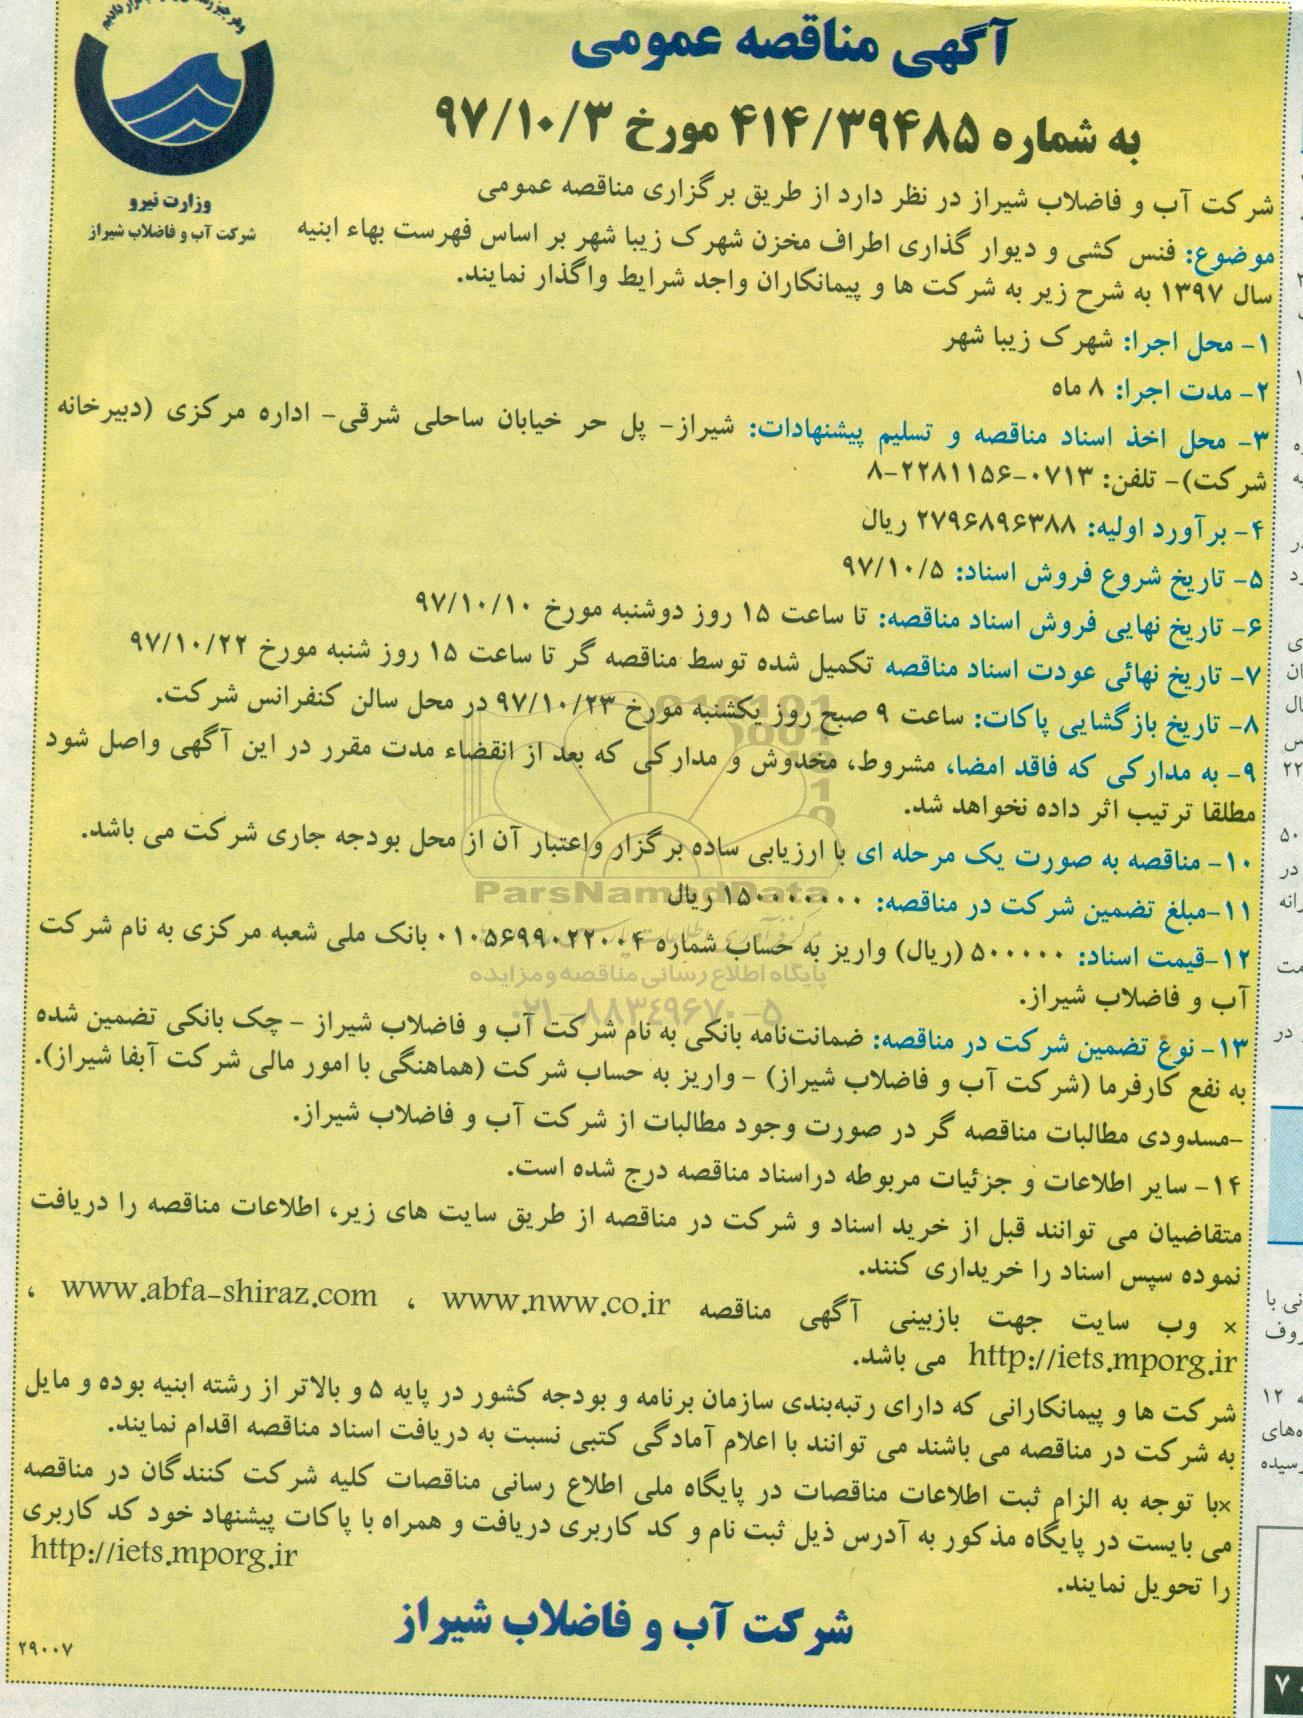 آگهی مناقصه عمومی
به شماره ۴۱۴/۳۹۴۸۵ مورخ ۹۷/۱۰/۳
وزارت نیرو
شرکت آب و فاضلاب شیراز
شرکت آب و فاضلاب شیراز در نظر دارد از طریق برگزاری مناقصه عمومی
موضوع: فنس کشی و دیوار گذاری اطراف مخزن شهرک زیبا شهر بر اساس فهرست بهاء ابنیه
سال ۱۳۹۷ به شرح زیر به شرکت ها و پیمانکاران واجد شرایط واگذار نمایند.
۱- محل اجرا: شهرک زیبا شهر
۲- مدت اجرا: ۸ ماه
۳- محل اخذ اسناد مناقصه و تسلیم پیشنهادات: شیراز- پل حر خیابان ساحلی شرقی- اداره مرکزی (دبیرخانه
شرکت)- تلفن: ۰۷۱۳-۲۲۸۱۱۵۶-۸
۴- برآورد اولیه: ۲۷۹۶۸۹۶۳۸۸ ریال
۵- تاریخ شروع فروش اسناد: ۹۷/۱۰/۵
۶- تاریخ نهایی فروش اسناد مناقصه: تا ساعت ۱۵ روز دوشنبه مورخ ۹۷/۱۰/۱۰
۷- تاریخ نهائی عودت اسناد مناقصه تکمیل شده توسط مناقصه گر تا ساعت ۱۵ روز شنبه مورخ ۹۷/۱۰/۲۲
۸- تاریخ بازگشایی پاکات: ساعت ۹ صبح روز یکشنبه مورخ ۹۷/۱۰/۲۳ در محل سالن کنفرانس شرکت.
۹- به مدارکی که فاقد امضا، مشروط، مخدوش و مدارکی که بعد از انقضاء مدت مقرر در این آگهی واصل شود
مطلقا ترتیب اثر داده نخواهد شد.
۱۰- مناقصه به صورت یک مرحله ای با ارزیابی ساده برگزار واعتبار آن از محل بودجه جاری شرکت می باشد.
ParsNamadData
۱۱-مبلغ تضمین شرکت در مناقصه: ۱۵۰۰۰۰۰۰۰ ریال
۱۲-قیمت اسناد: ۵۰۰۰۰۰ (ریال) واریز به حساب شماره ۰۱۰۵۶۹۹۰۲۲۰۰۴ بانک ملی شعبه مرکزی به نام شرکت
آب و فاضلاب شیراز.
پایگاه اطلاع رسانی مناقصه و مزایده
۰۲۱-۸۸۳۴۹۶۷۰-۵
۱۳- نوع تضمین شرکت در مناقصه: ضمانت‌نامه بانکی به نام شرکت آب و فاضلاب شیراز - چک بانکی تضمین شده
به نفع کارفرما (شرکت آب و فاضلاب شیراز) - واریز به حساب شرکت (هماهنگی با امور مالی شرکت آبفا شیراز).
-مسدودی مطالبات مناقصه گر در صورت وجود مطالبات از شرکت آب و فاضلاب شیراز.
۱۴- سایر اطلاعات و جزئیات مربوطه دراسناد مناقصه درج شده است.
متقاضیان می توانند قبل از خرید اسناد و شرکت در مناقصه از طریق سایت های زیر، اطلاعات مناقصه را دریافت
نموده سپس اسناد را خریداری کنند.
× وب سایت جهت بازبینی آگهی مناقصه www.nww.co.ir ، www.abfa-shiraz.com ،
http://iets.mporg.ir می باشد.
شرکت ها و پیمانکارانی که دارای رتبه‌بندی سازمان برنامه و بودجه کشور در پایه ۵ و بالاتر از رشته ابنیه بوده و مایل
به شرکت در مناقصه می باشند می توانند با اعلام آمادگی کتبی نسبت به دریافت اسناد مناقصه اقدام نمایند.
×با توجه به الزام ثبت اطلاعات مناقصات در پایگاه ملی اطلاع رسانی مناقصات کلیه شرکت کنندگان در مناقصه
می بایست در پایگاه مذکور به آدرس ذیل ثبت نام و کد کاربری دریافت و همراه با پاکات پیشنهاد خود کد کاربری
را تحویل نمایند.
http://iets.mporg.ir
شرکت آب و فاضلاب شیراز
۲۹۰۰۷